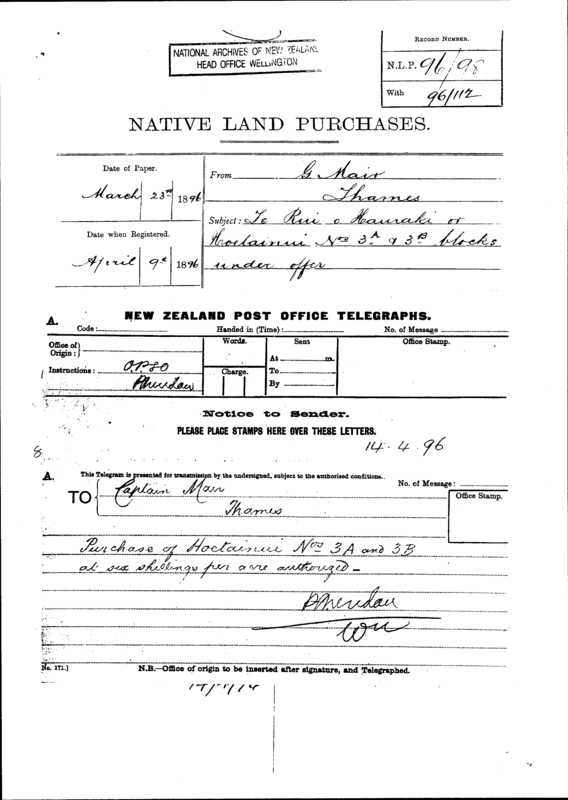 NATIONAL ARCHIVES OF NEW ZEALAND
HEAD OFFICE WELLINGTON
RECORD NUMBER.
N.L.P. 96/98
With 96/112
NATIVE LAND PURCHASES.
Date of Paper.
March 23rd 1896
Date when Registered.
April 9th 1896
From G Mair
Thames
Subject: Te Rui o Hauraki or
Hoetainui Nos 3A & 3B blocks
under offer
A. NEW ZEALAND POST OFFICE TELEGRAPHS.
Code: Handed in (Time): No. of Message
Office of Origin: Words. Sent Office Stamp.
At m.
Instructions: OPSO Charge. To
PSheridan By
Notice to Sender.
PLEASE PLACE STAMPS HERE OVER THESE LETTERS.
14.4.96
8
A. This Telegram is presented for transmission by the undersigned, subject to the authorised conditions.
No. of Message:
TO Captain Mair Office Stamp.
Thames
Purchase of Hoetainui Nos 3A and 3B
at six shillings per acre authorized –
PSheridan
No. 171.] N.B.—Office of origin to be inserted after signature, and Telegraphed.